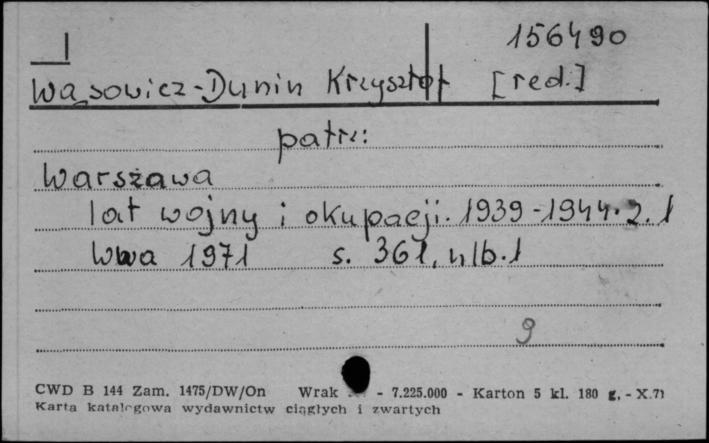 156490
I
Wąsowicz-Dunin Krzysztof [red.]
patrz:
Warszawa
lat wojny i okupacji. 1939-1944. Z. 1
Wwa 1971 s. 361, nlb. 1
9
CWD B 144 Zam. 1475/DW/On Wrak - 7.225.000 - Karton 5 kl. 180 g. - X.71
Karta katalogowa wydawnictw ciągłych i zwartych